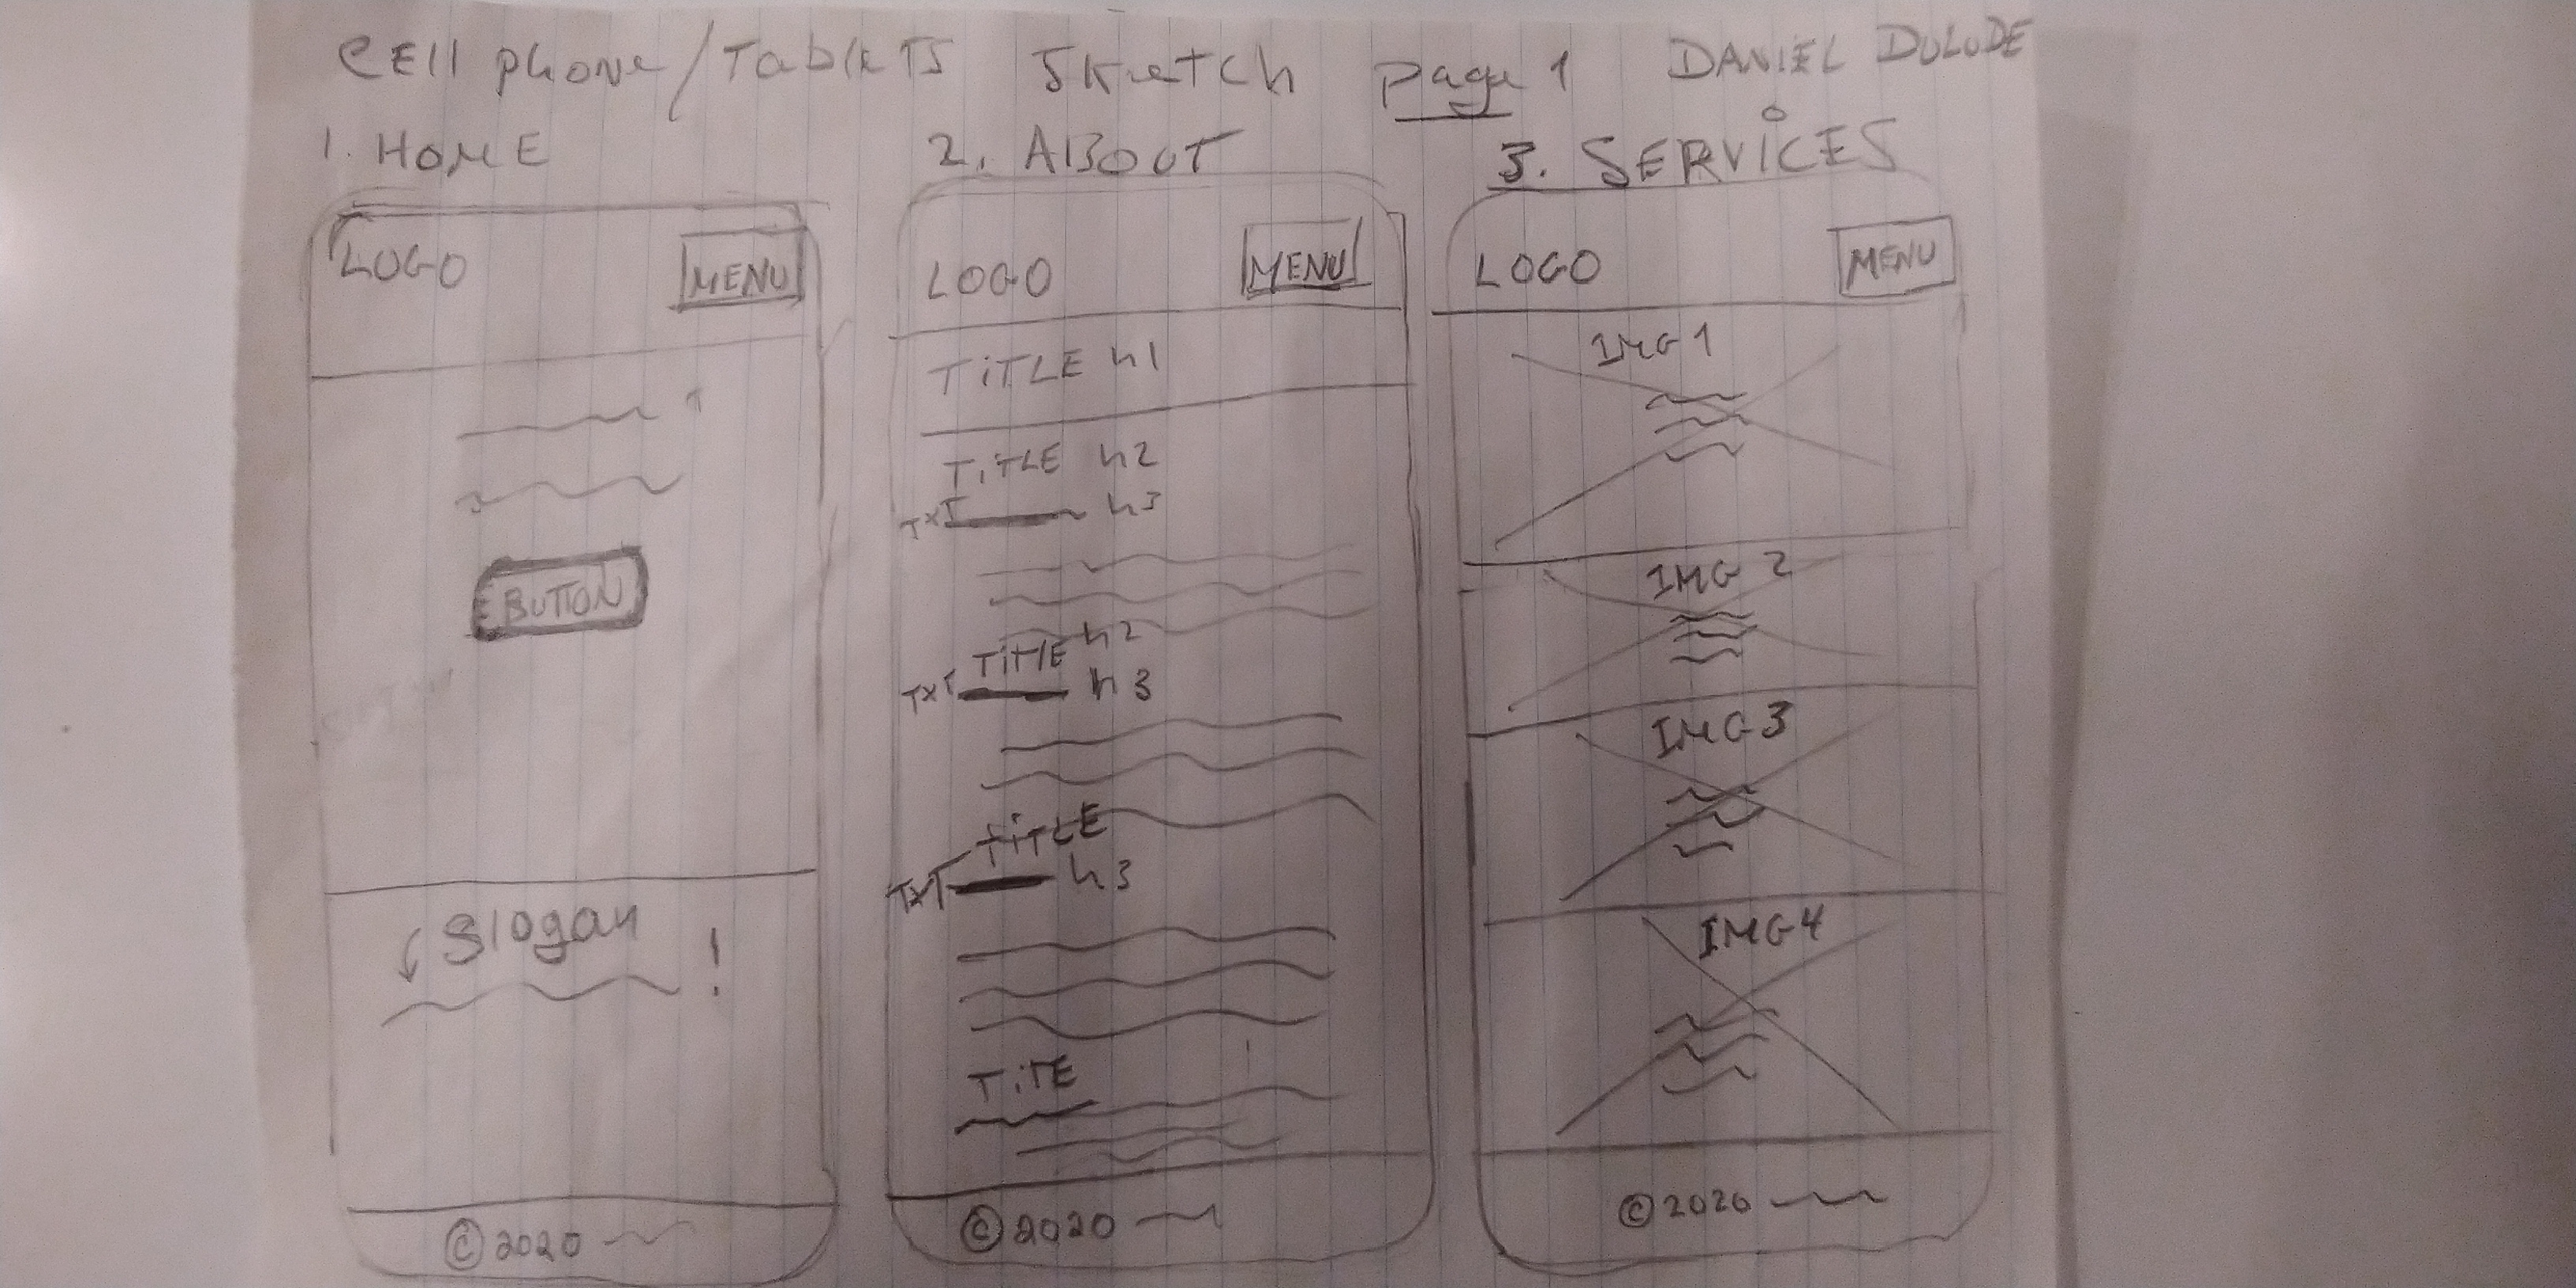 CEll phone/TableTS Sketch page 1 DANiEL DULUDE
1. HOME
LOGO MENU
BUTTON
Slogan !
© 2020
2. ABOUT
LOGO MENU
TiTLE h1
TiTLE h2
TXT h3
TiTlE h2
TXT h3
TiTLE
TXT h3
TiTE
© 2020
3. SERViCES
LOGO MENU
IMG 1
IMG 2
IMG 3
IMG 4
© 2020